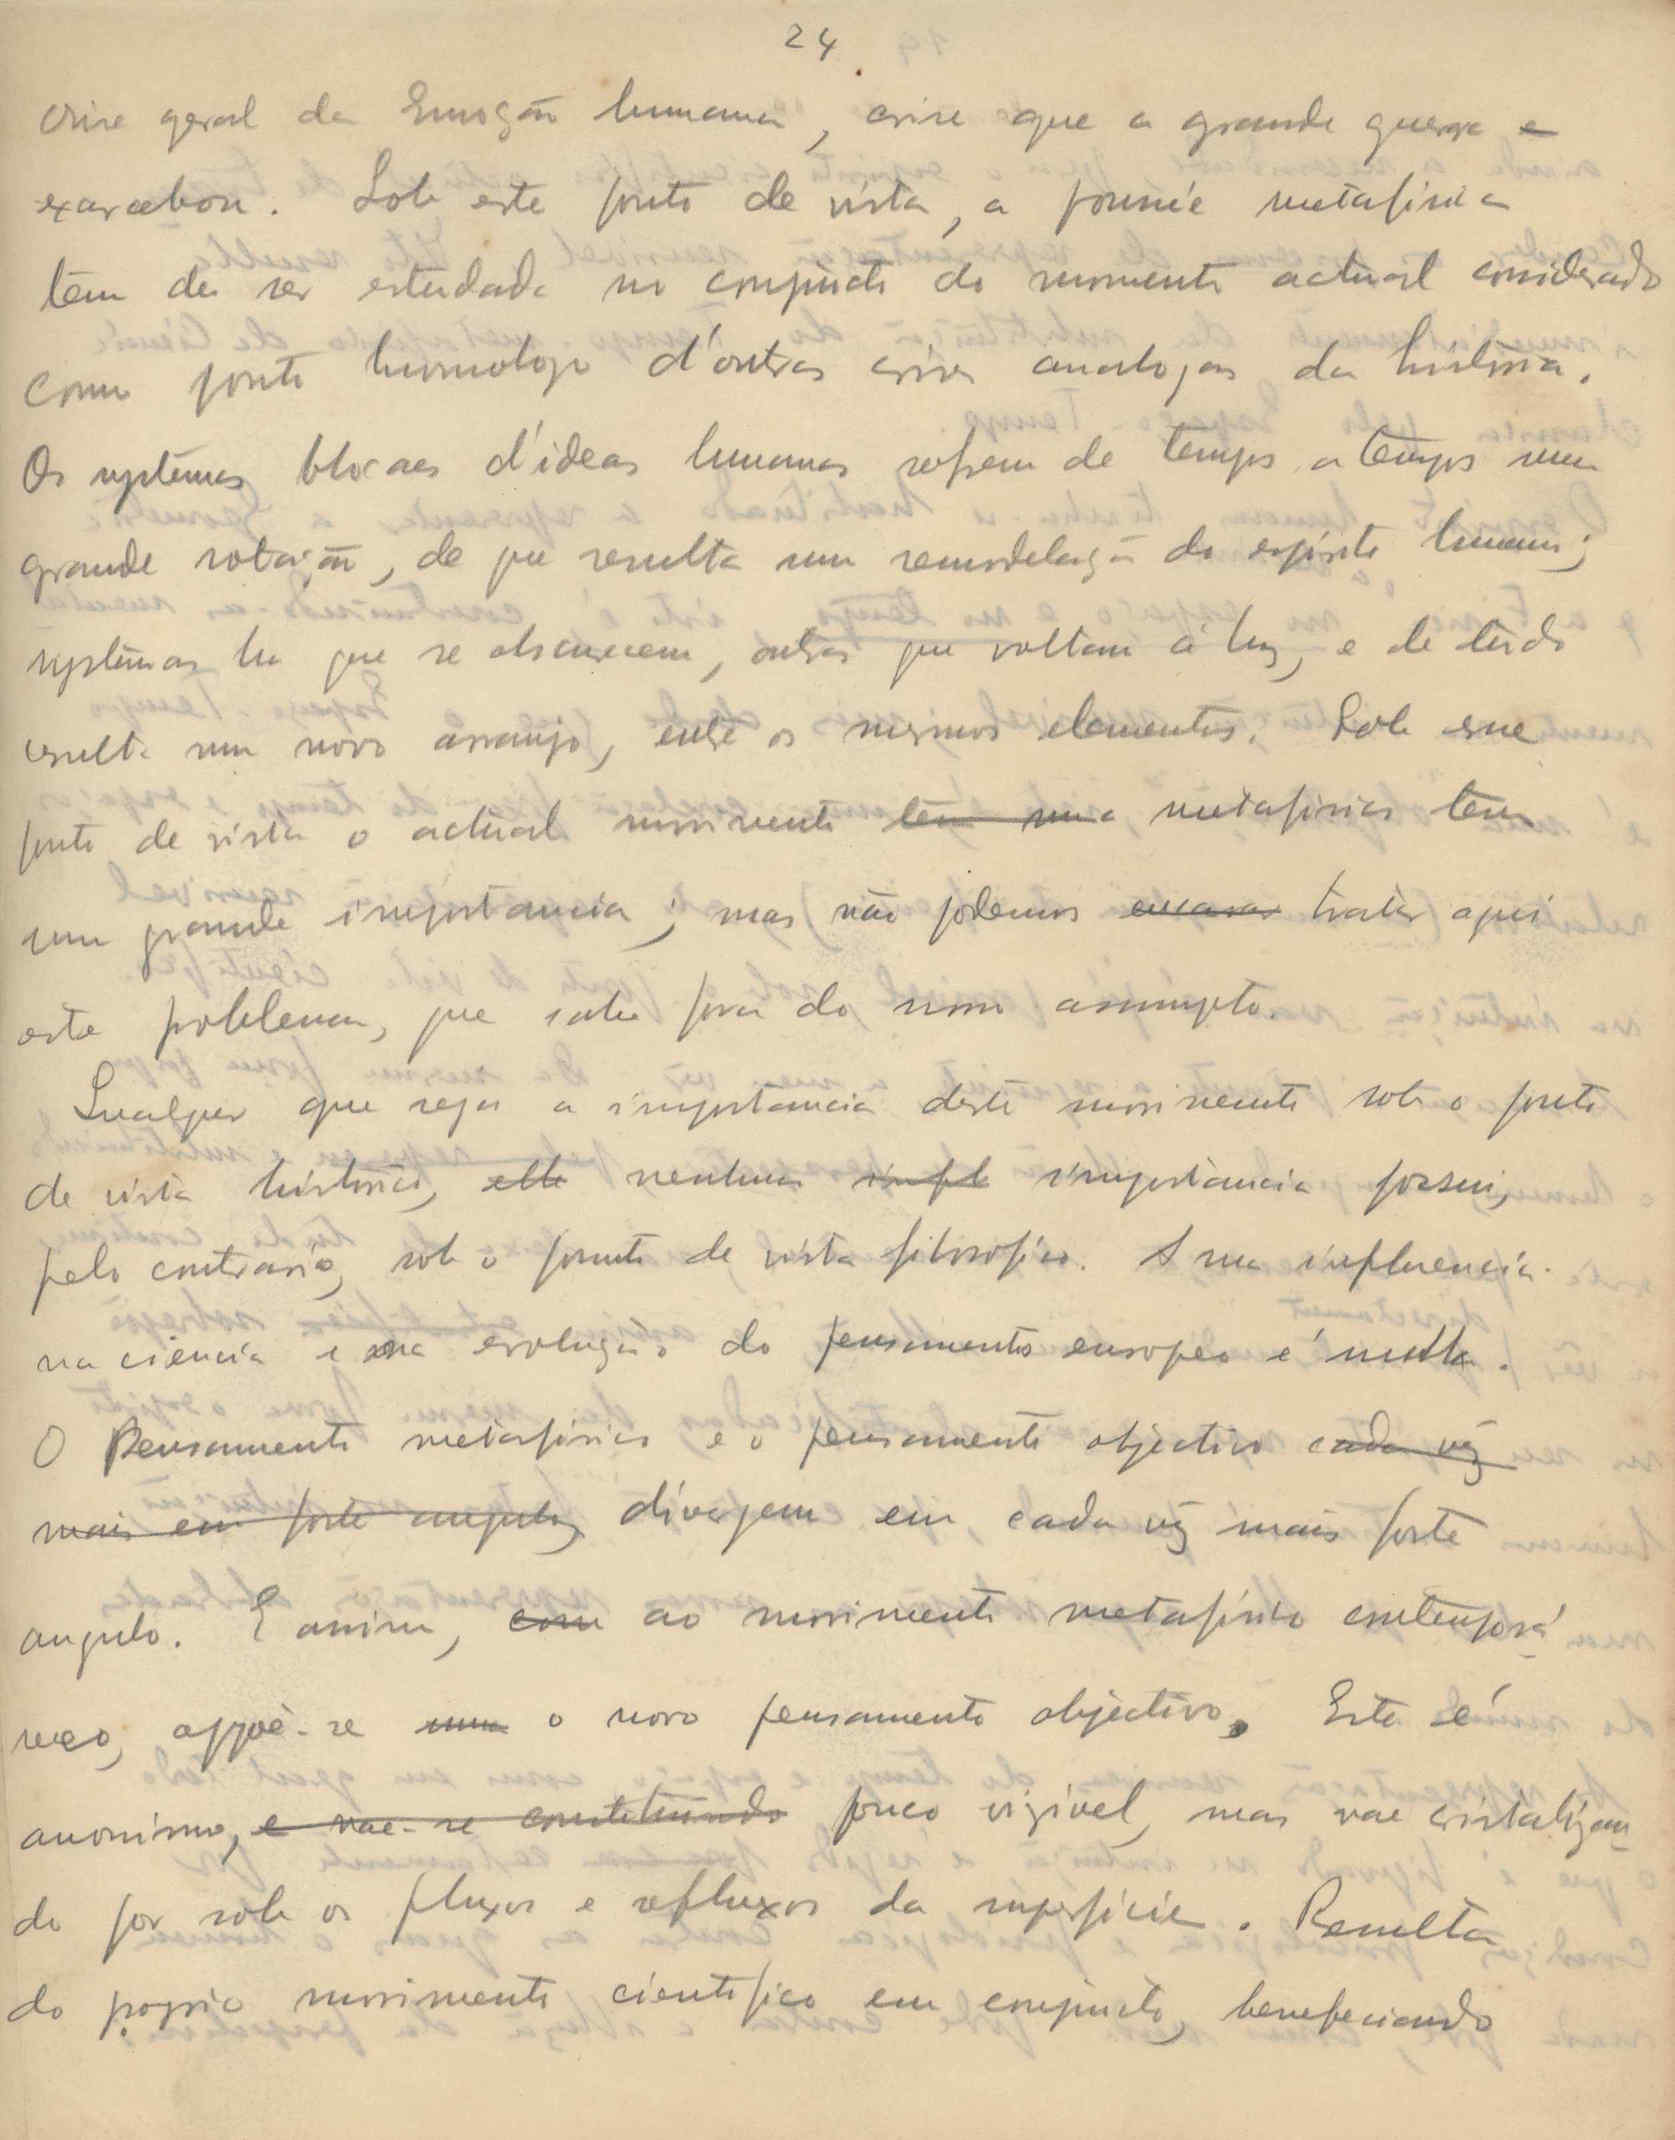 24
crise geral da Emoção humana, crise que a grande guerra e
exarcebou. Sob este ponto de vista, a poussée metafisica
tem de ser estudada no conjuncto do momento actual considerado
como ponto homologo d'outras crises analogas da história.
Os systemas blocaes d'ideas humanas sofrem de tempos a tempos uma
grande rotação, de que resulta uma remodelação do espirito humano;
systemas ha que se obscurecem, outros que voltam á luz, e de tudo
resulta um novo arranjo, entre os mesmos elementos. Sob esse
ponto de vista o actual movimento tem uma metafisico tem
uma grande importancia; mas não podemos encarar tratar aqui
este problema, que sahe fora do nosso assumpto.
Qualquer que seja a importancia deste movimento sob o ponto
de vista histórico, elle nenhuma impt importancia possui,
pelo contrario, sob o ponto de vista filosofico. A sua influencia
na ciencia e na evolução do pensamento europeo é nulla.
O Pensamento metafisico e o pensamento objectivo cada vez
mais em forte angulo, divergem em cada vez mais forte
angulo. E assim, com ao movimento metafisico contempora
neo, oppoe-se um o novo pensamento objectivo. Este é
anonimo, e vae-se constituindo pouco vizivel, mas vae cristalizan-
do por sob os fluxos e refluxos da superficie. Resulta
do proprio movimento cientifico em conjuncto, beneficiando